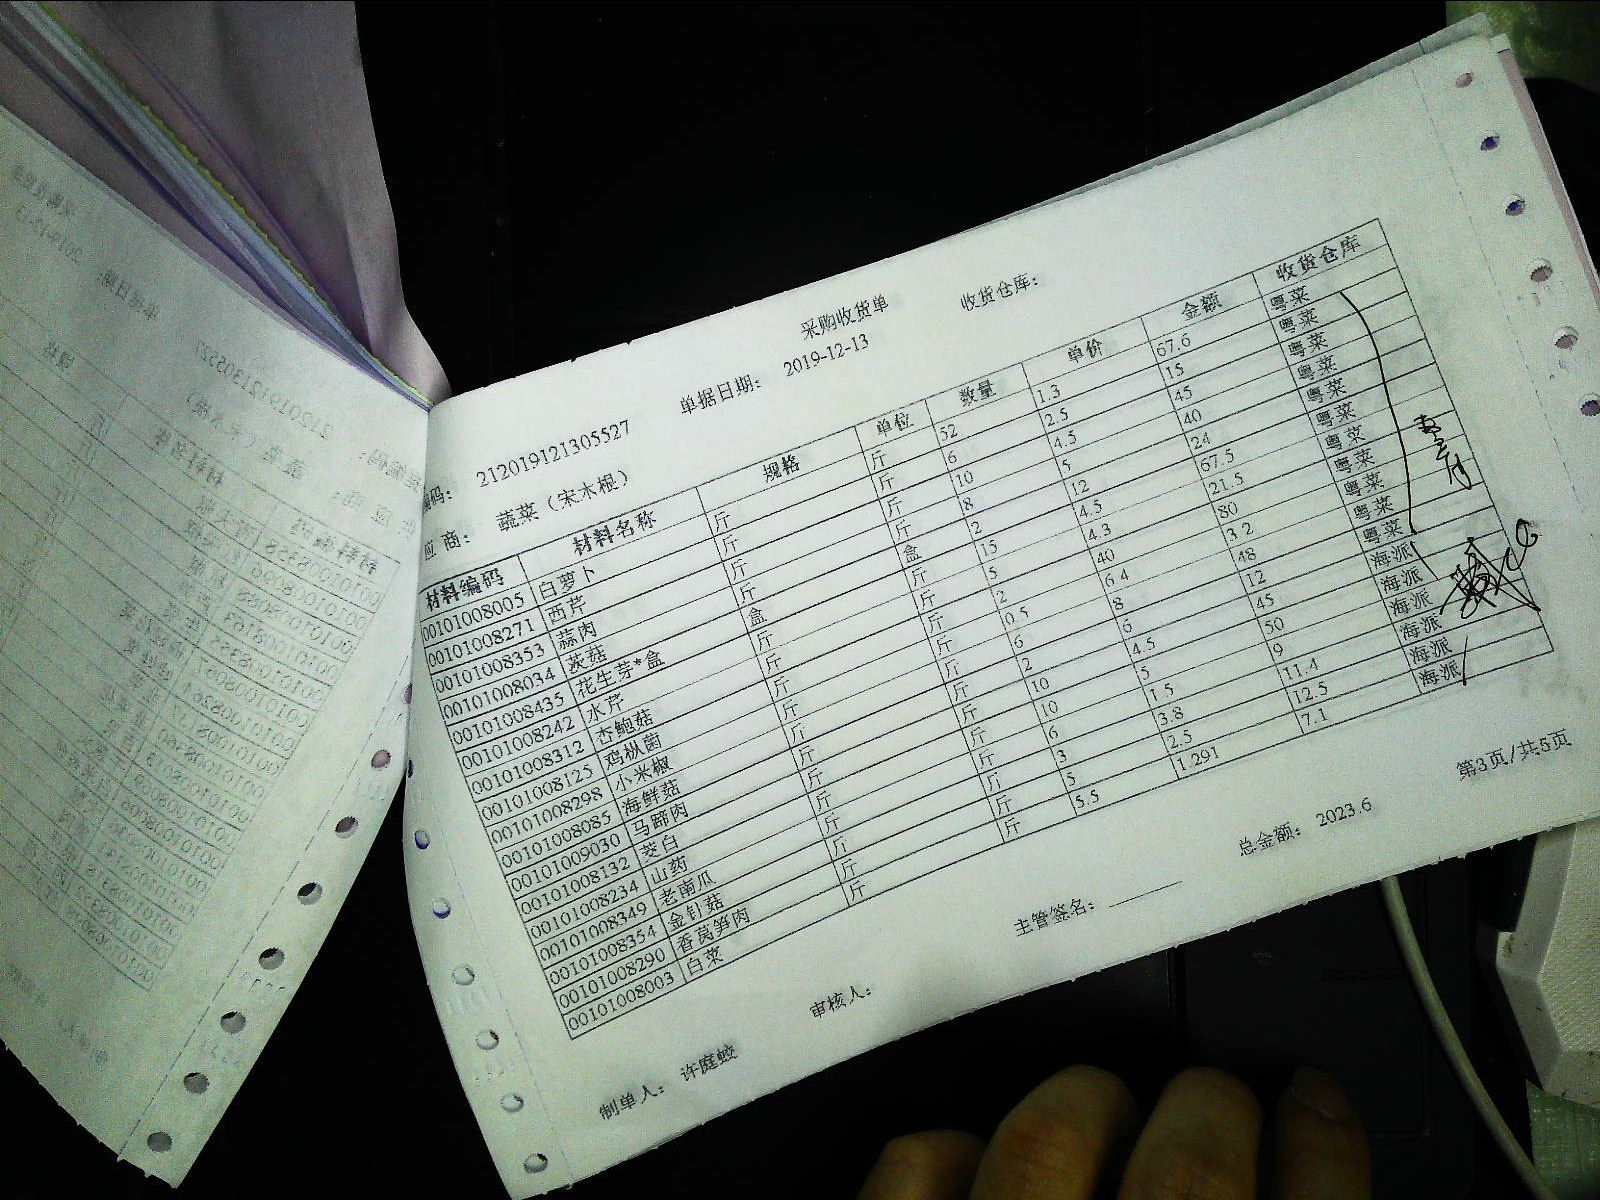 采购收货单
编码： 212019121305527 单据日期： 2019-12-13 收货仓库：
应商： 蔬菜（宋木根）
材料编码 材料名称 规格 单位 数量 单价 金额 收货仓库
00101008005 白萝卜 斤 斤 52 1.3 67.6 粤菜
00101008271 西芹 斤 斤 6 2.5 15 粤菜
00101008353 蒜肉 斤 斤 10 4.5 45 粤菜
00101008034 茨菇 斤 斤 8 5 40 粤菜
00101008435 花生芽*盒 盒 盒 2 12 24 粤菜
00101008242 水芹 斤 斤 15 4.5 67.5 粤菜
00101008312 杏鲍菇 斤 斤 5 4.3 21.5 粤菜
00101008125 鸡枞菌 斤 斤 2 40 80 粤菜
00101008298 小米椒 斤 斤 0.5 6.4 3.2 粤菜
00101008085 海鲜菇 斤 斤 6 8 48 粤菜
00101009030 马蹄肉 斤 斤 2 6 12 粤菜
00101008132 茭白 斤 斤 10 4.5 45 海派
00101008234 山药 斤 斤 10 5 50 海派
00101008349 老南瓜 斤 斤 6 1.5 9 海派
00101008354 金针菇 斤 斤 3 3.8 11.4 海派
00101008290 香莴笋肉 斤 斤 5 2.5 12.5 海派
00101008003 白菜 斤 斤 5.5 1.291 7.1 海派
制单人： 许庭蛟 审核人： 主管签名： 总金额： 2023.6 第3页/共5页